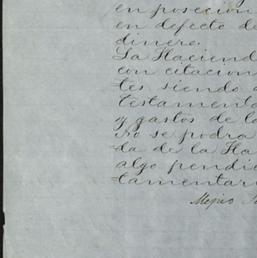 en posecion
en defecto de
dinero.
La Haciend
con citacion
tes siendo d
testamenta
y gastos de la
No se podra
da de la Ha
algo pendie
tamentari
Mejico